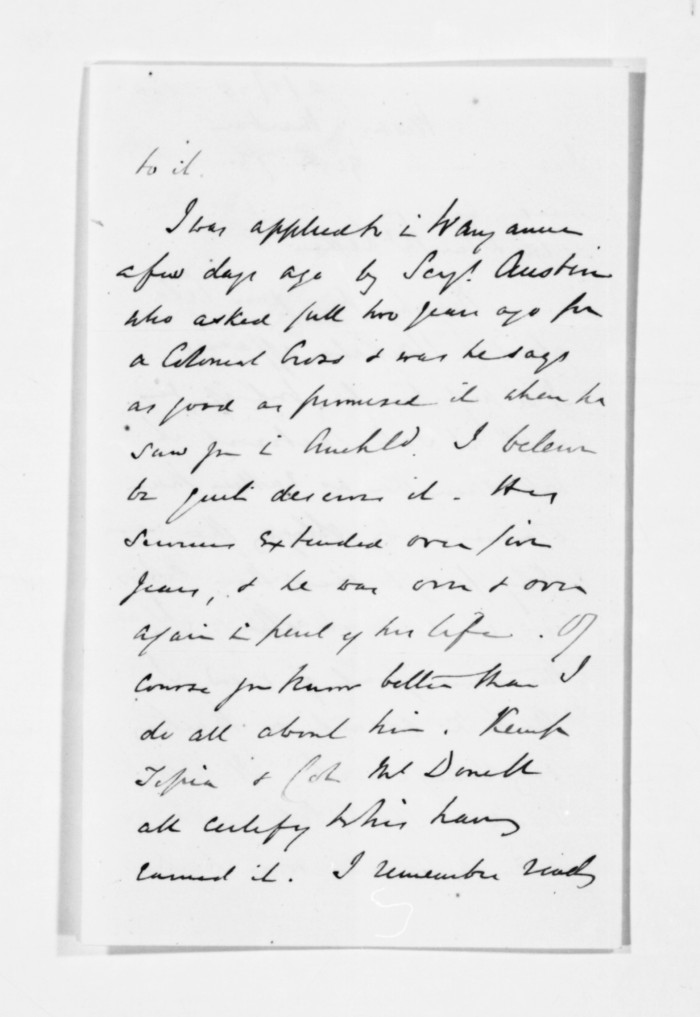 to it.
I was applied to in Wanganui
a few days ago by Sergt. Austin
who asked full two years ago for
a Colonial Cross & was he says
as good as promised it when he
saw you in Auckld. I believe
he quite deserves it. His
services extended over five
years, & he was over & over
again in peril of his life. Of
course you know better than I
do all about him. Kemp
Topia & Col. McDonell
all certify to his having
earned it. I remember